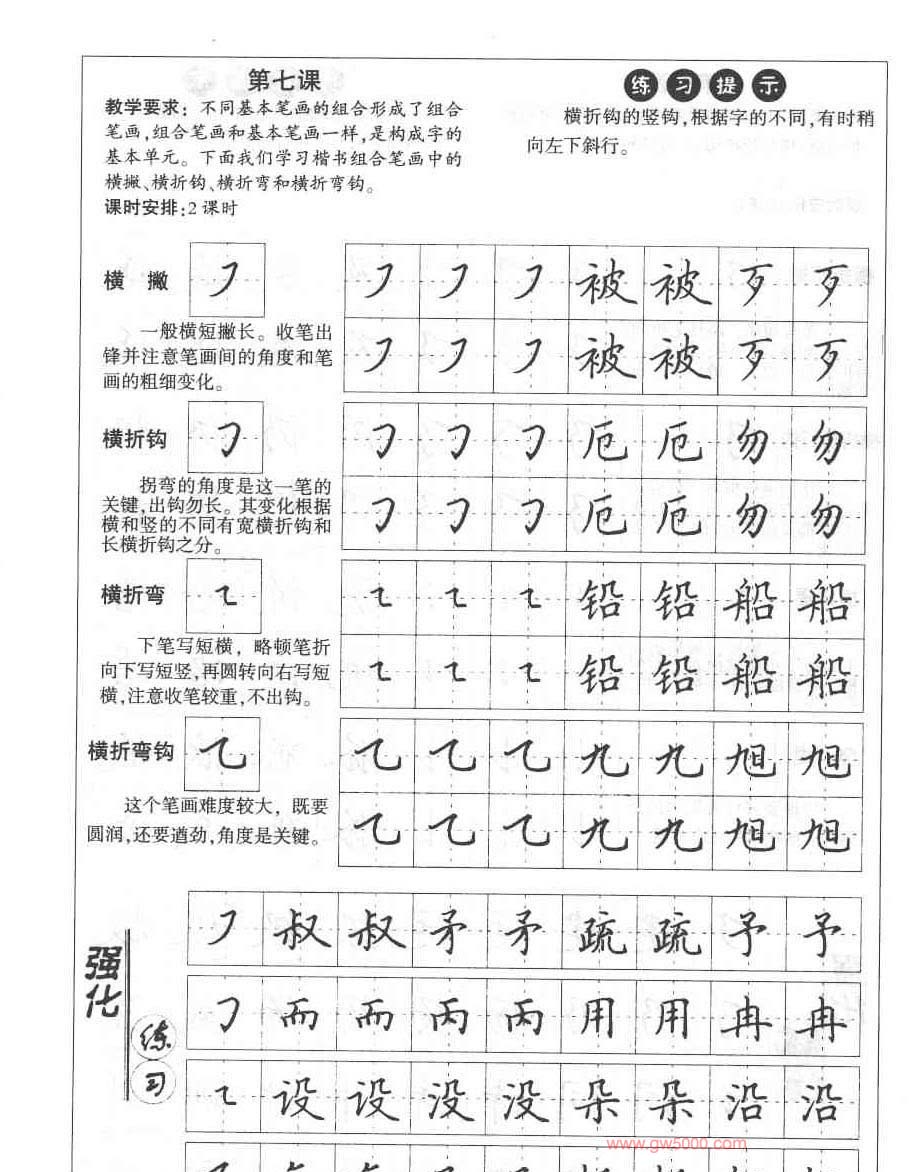 第七课
教学要求：不同基本笔画的组合形成了组合
笔画,组合笔画和基本笔画一样,是构成字的
基本单元。下面我们学习楷书组合笔画中的
横撇、横折钩、横折弯和横折弯钩。
课时安排:2课时
练习提示
横折钩的竖钩,根据字的不同,有时稍
向左下斜行。
横 撇
一般横短撇长。收笔出
锋并注意笔画间的角度和笔
画的粗细变化。
被 被 歹 歹
被 被 歹 歹
横折钩
拐弯的角度是这一笔的
关键,出钩勿长。其变化根据
横和竖的不同有宽横折钩和
长横折钩之分。
厄 厄 勿 勿
厄 厄 勿 勿
横折弯
下笔写短横，略顿笔折
向下写短竖,再圆转向右写短
横,注意收笔较重,不出钩。
铅 铅 船 船
铅 铅 船 船
横折弯钩
这个笔画难度较大，既要
圆润,还要遒劲,角度是关键。
九 九 旭 旭
九 九 旭 旭
强化
练习
叔 叔 矛 矛 疏 疏 予 予
而 而 丙 丙 用 用 冉 冉
设 设 没 没 朵 朵 沿 沿
www.gw5000.com